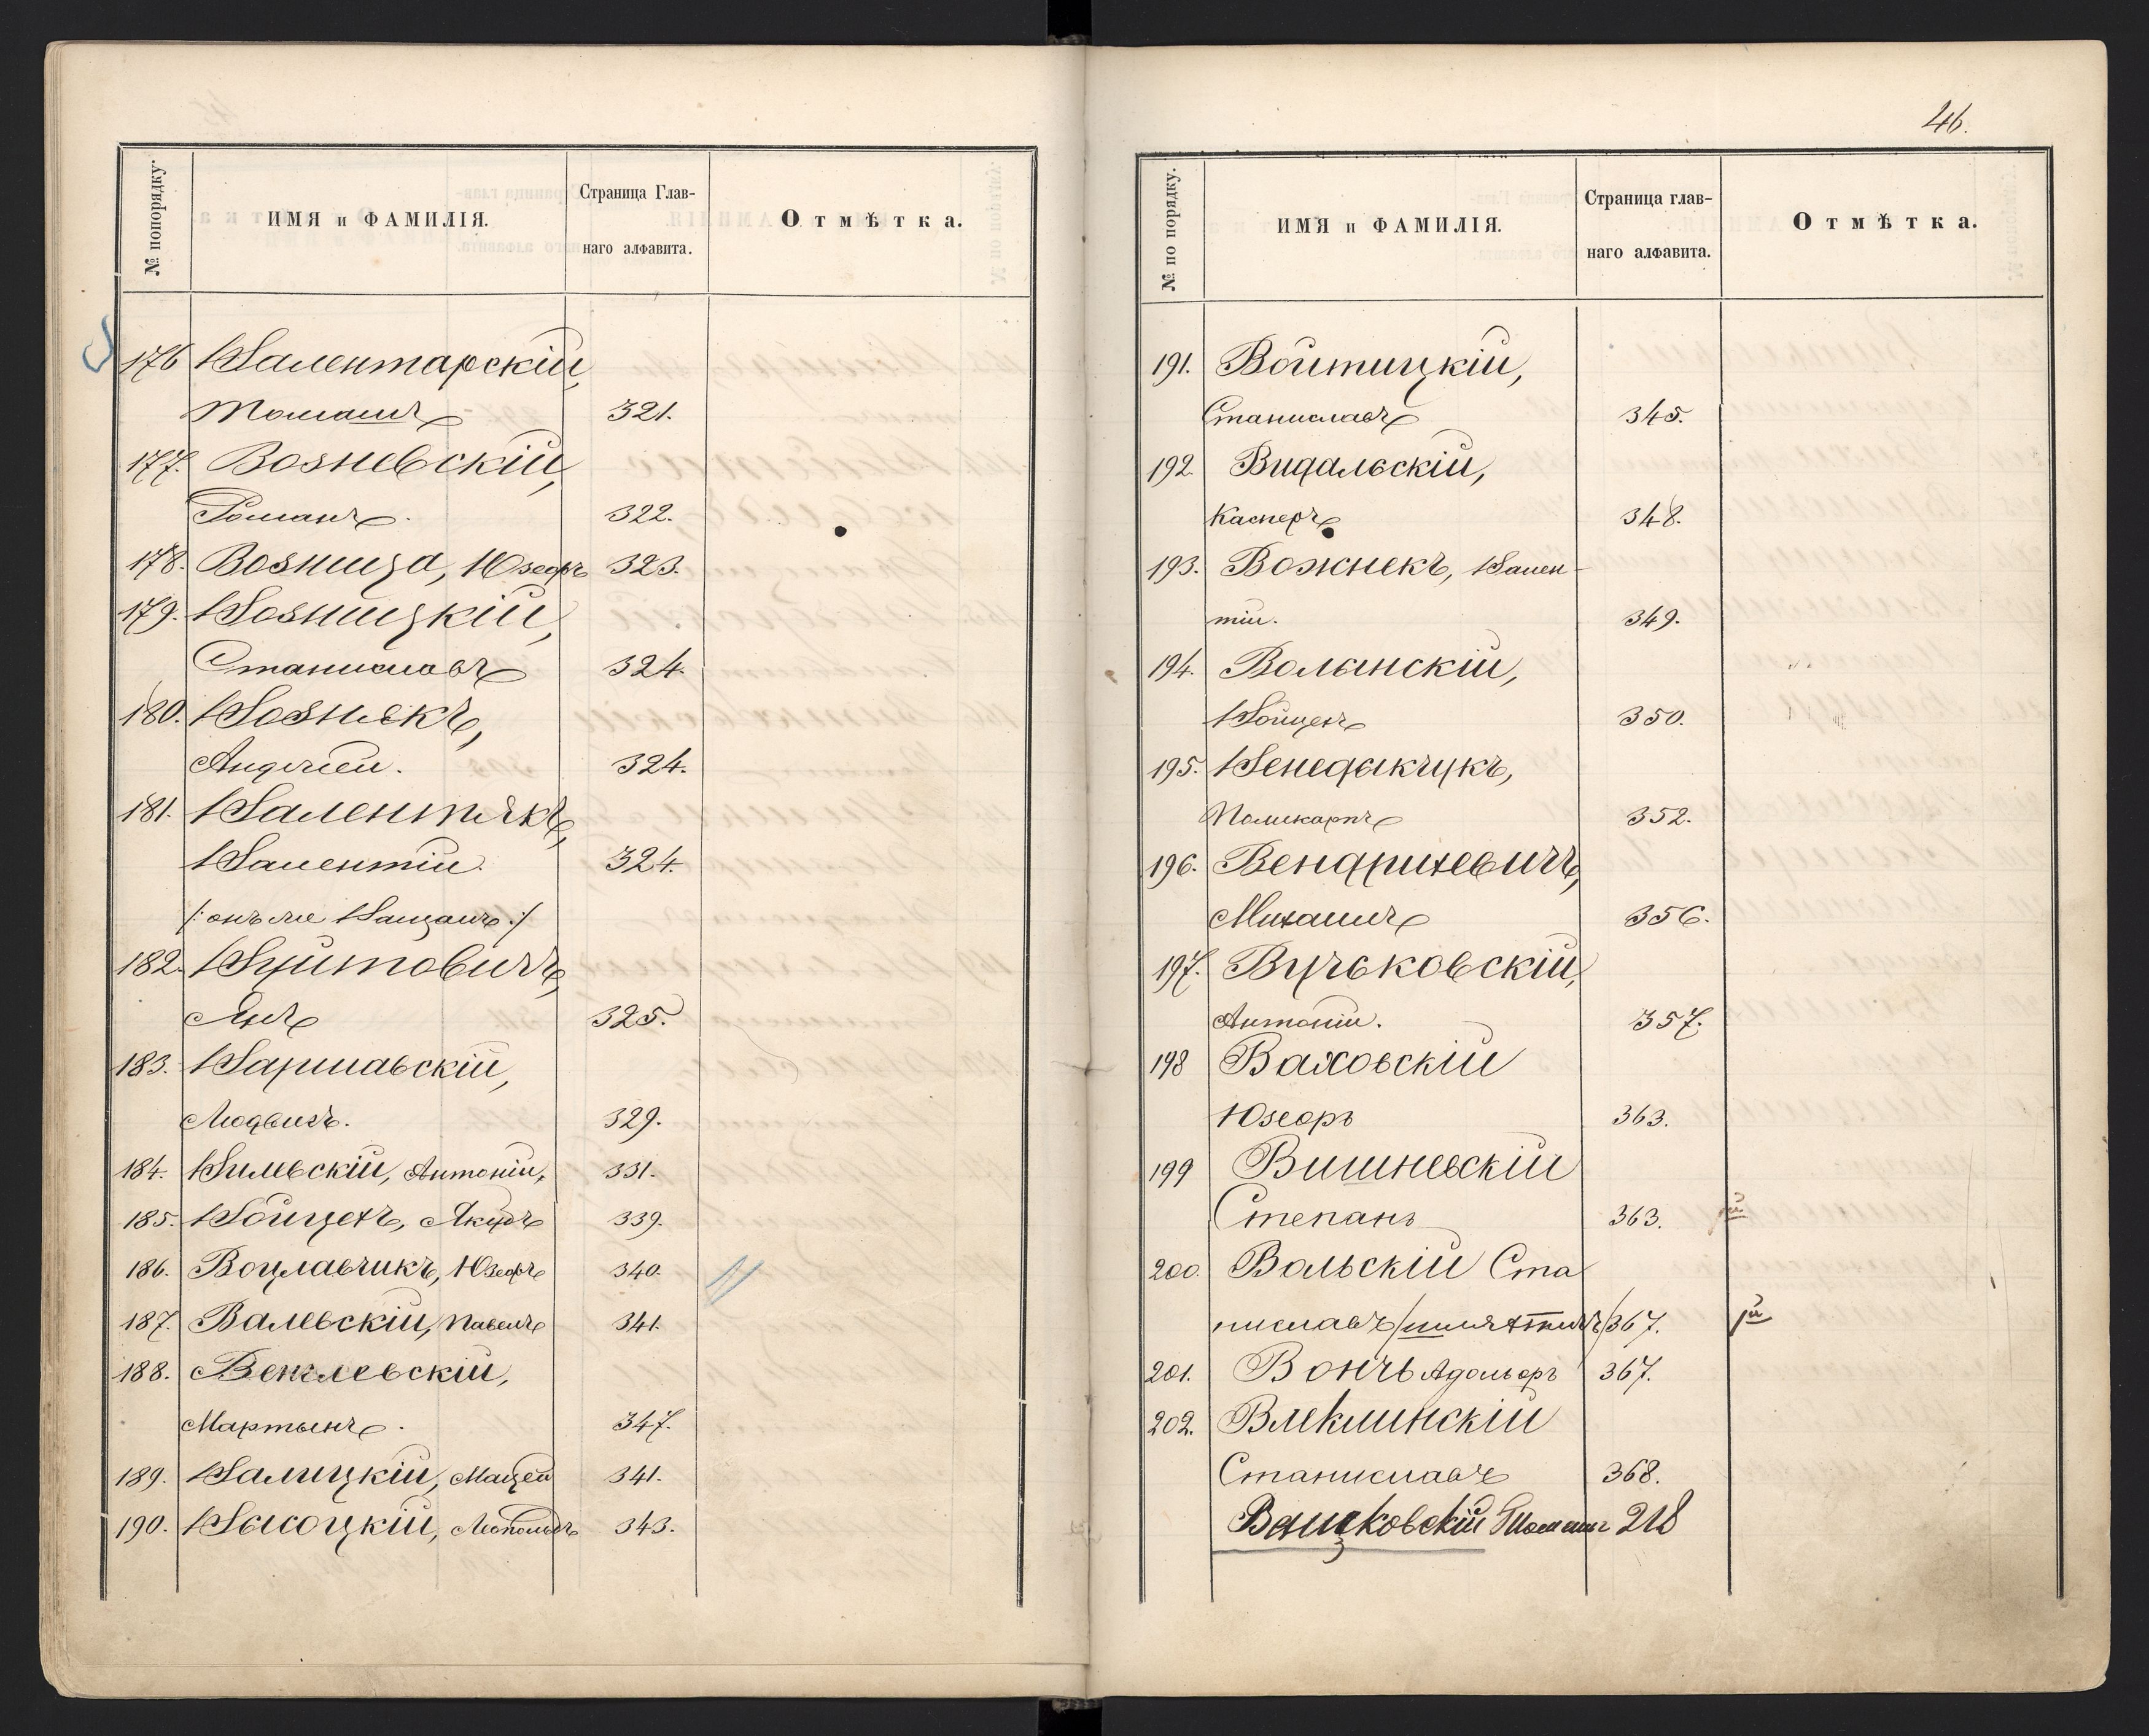 № попорядку.
ИМЯ и ФАМИЛІЯ.
Страница Глав-
наго алфавита.
Отмѣтка.
176 Валентарскій,
Томашъ 321.
177. Возневскій,
Романъ. 322.
178. Возница, Юзефъ 323.
179. Возницкій,
Станиславъ 324.
180. Вознякъ,
Андрѣй. 324.
181. Валентякъ,
Валентій. 324.
/: онъ же :/
182. Вуйтовичъ,
Янъ 325.
183. Варшавскій,
Людвигъ. 329.
184. Вилевскій, Антоній, 331.
185. Войцехъ, Якубъ 339.
186. Воцлавчикъ, Юзефъ 340.
187. Валевскій, Павелъ 341.
188. Венглевскій,
Мартынъ. 347.
189. Валицкій, Мацей 341.
190. Высоцкій, Леопольдъ 343.
46.
№ по порядку.
ИМЯ и ФАМИЛІЯ.
Страница глав-
наго алфавита.
Отмѣтка.
191. Войтицкій,
Станиславъ 345.
192 Видальскій,
Касперъ 348.
193. Вожнекъ, Вален-
тій. 349.
194. Волынскій,
Войцехъ 350.
195. Бенедыкчукъ,
Поликарпъ 352.
196. Вендрихевичъ,
Михаилъ 356.
197. Вучьковскій,
Антоній. 357.
198 Ваховскій
Юзефъ 363.
199 Вишневскій
Степанъ 363.
200. Вольскій Ста
ниславъ / 367.
201. Вончь Адольфъ 367.
202. Влеклинскій
Станиславъ 368.
Томашъ 218